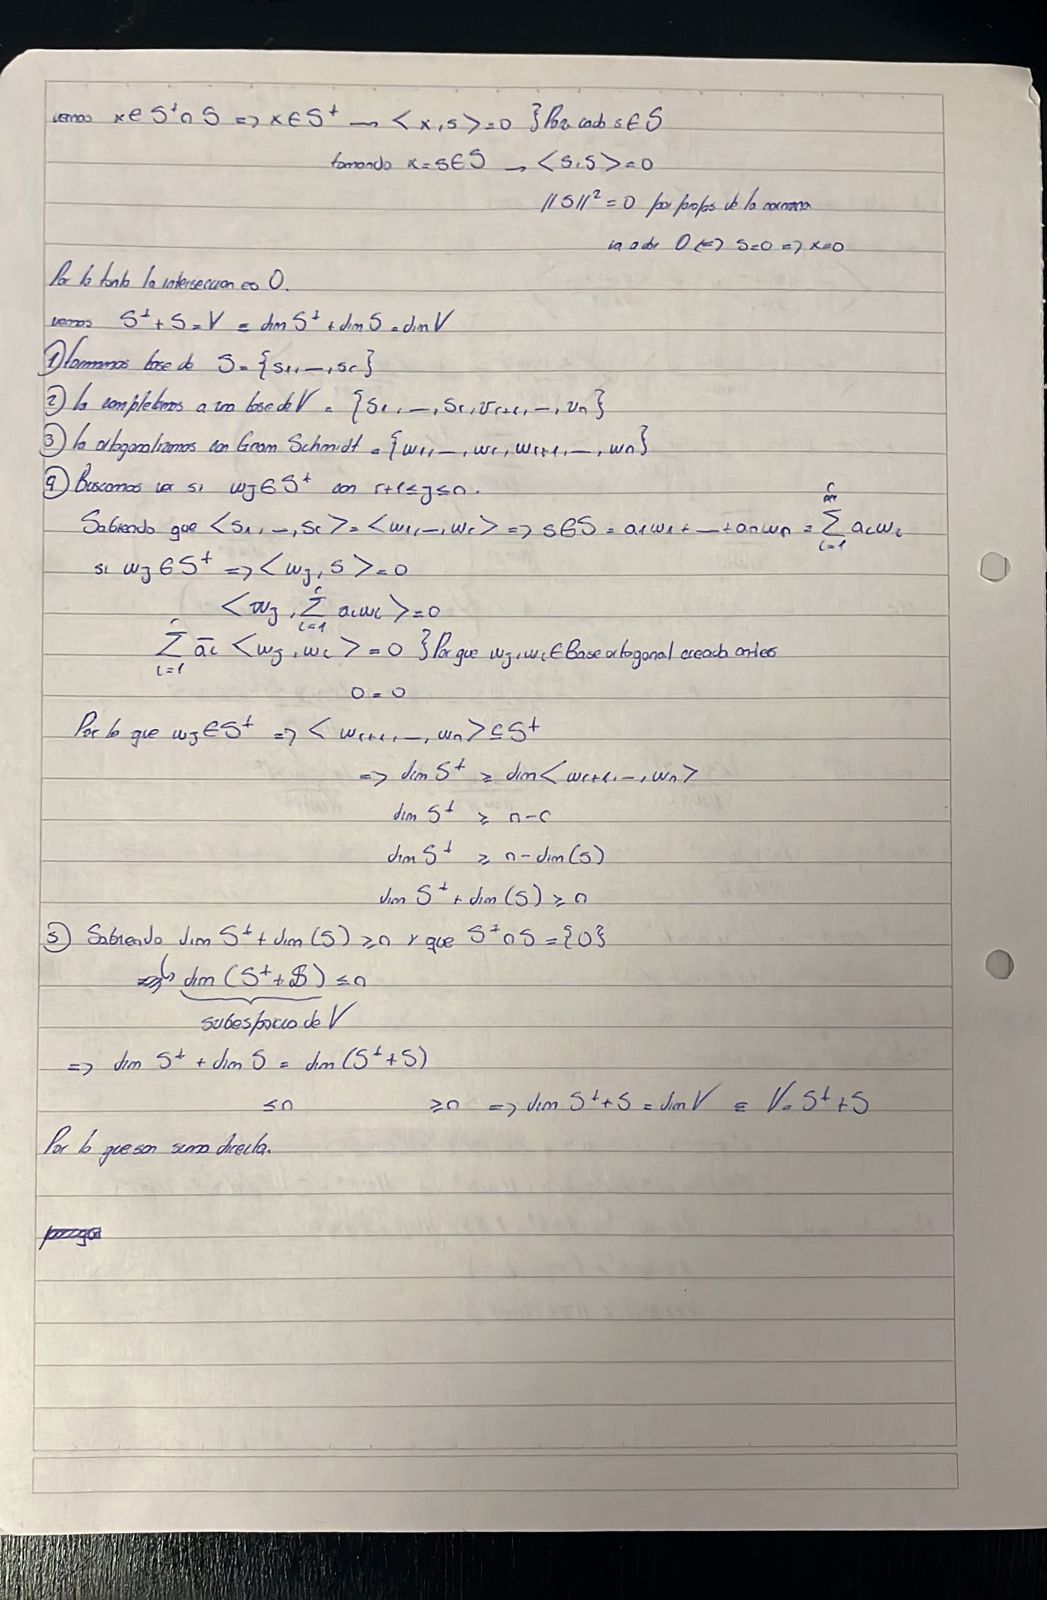 vemos x ∈ S⊥ ∩ S => x ∈ S⊥ → <x,s> = 0 } Para cada s ∈ S
tomando x = s ∈ S → <s,s> = 0
||S||² = 0 por props de la norma
va a dar 0 <=> s=0 => x=0
Por lo tanto la interseccion es 0.
vemos S⊥ + S = V = dim S⊥ + dim S = dim V
① Tomamos base de S = {s1, ..., sr}
② la completamos a una base de V = {s1, ..., sr, vr+1, ..., vn}
③ la ortogonalizamos con Gram Schmidt = {w1, ..., wr, wr+1, ..., wn}
④ Buscamos ver si wj ∈ S⊥ con r+1 ≤ j ≤ n.
Sabiendo que <s1, ..., sr> = <w1, ..., wr> => s ∈ S = a1w1 + ... + anwn = Σ_{i=1}^{r} aiwi
si wj ∈ S⊥ => <wj, s> = 0
<wj, Σ_{i=1}^{r} aiwi> = 0
Σ_{i=1}^{r} āi <wj, wi> = 0 } Porque wj, wi ∈ Base ortogonal creada antes
0 = 0
Por lo que wj ∈ S⊥ => <wr+1, ..., wn> ⊆ S⊥
=> dim S⊥ ≥ dim <wr+1, ..., wn>
dim S⊥ ≥ n-r
dim S⊥ ≥ n - dim(S)
dim S⊥ + dim(S) ≥ n
⑤ Sabiendo dim S⊥ + dim(S) ≥ n y que S⊥ ∩ S = {0}
↳ dim(S⊥ + S) ≤ n
subespacio de V
=> dim S⊥ + dim S = dim(S⊥ + S)
≤ n ≥ n => dim S⊥ + S = dim V = V = S⊥ + S
Por lo que son suma directa.